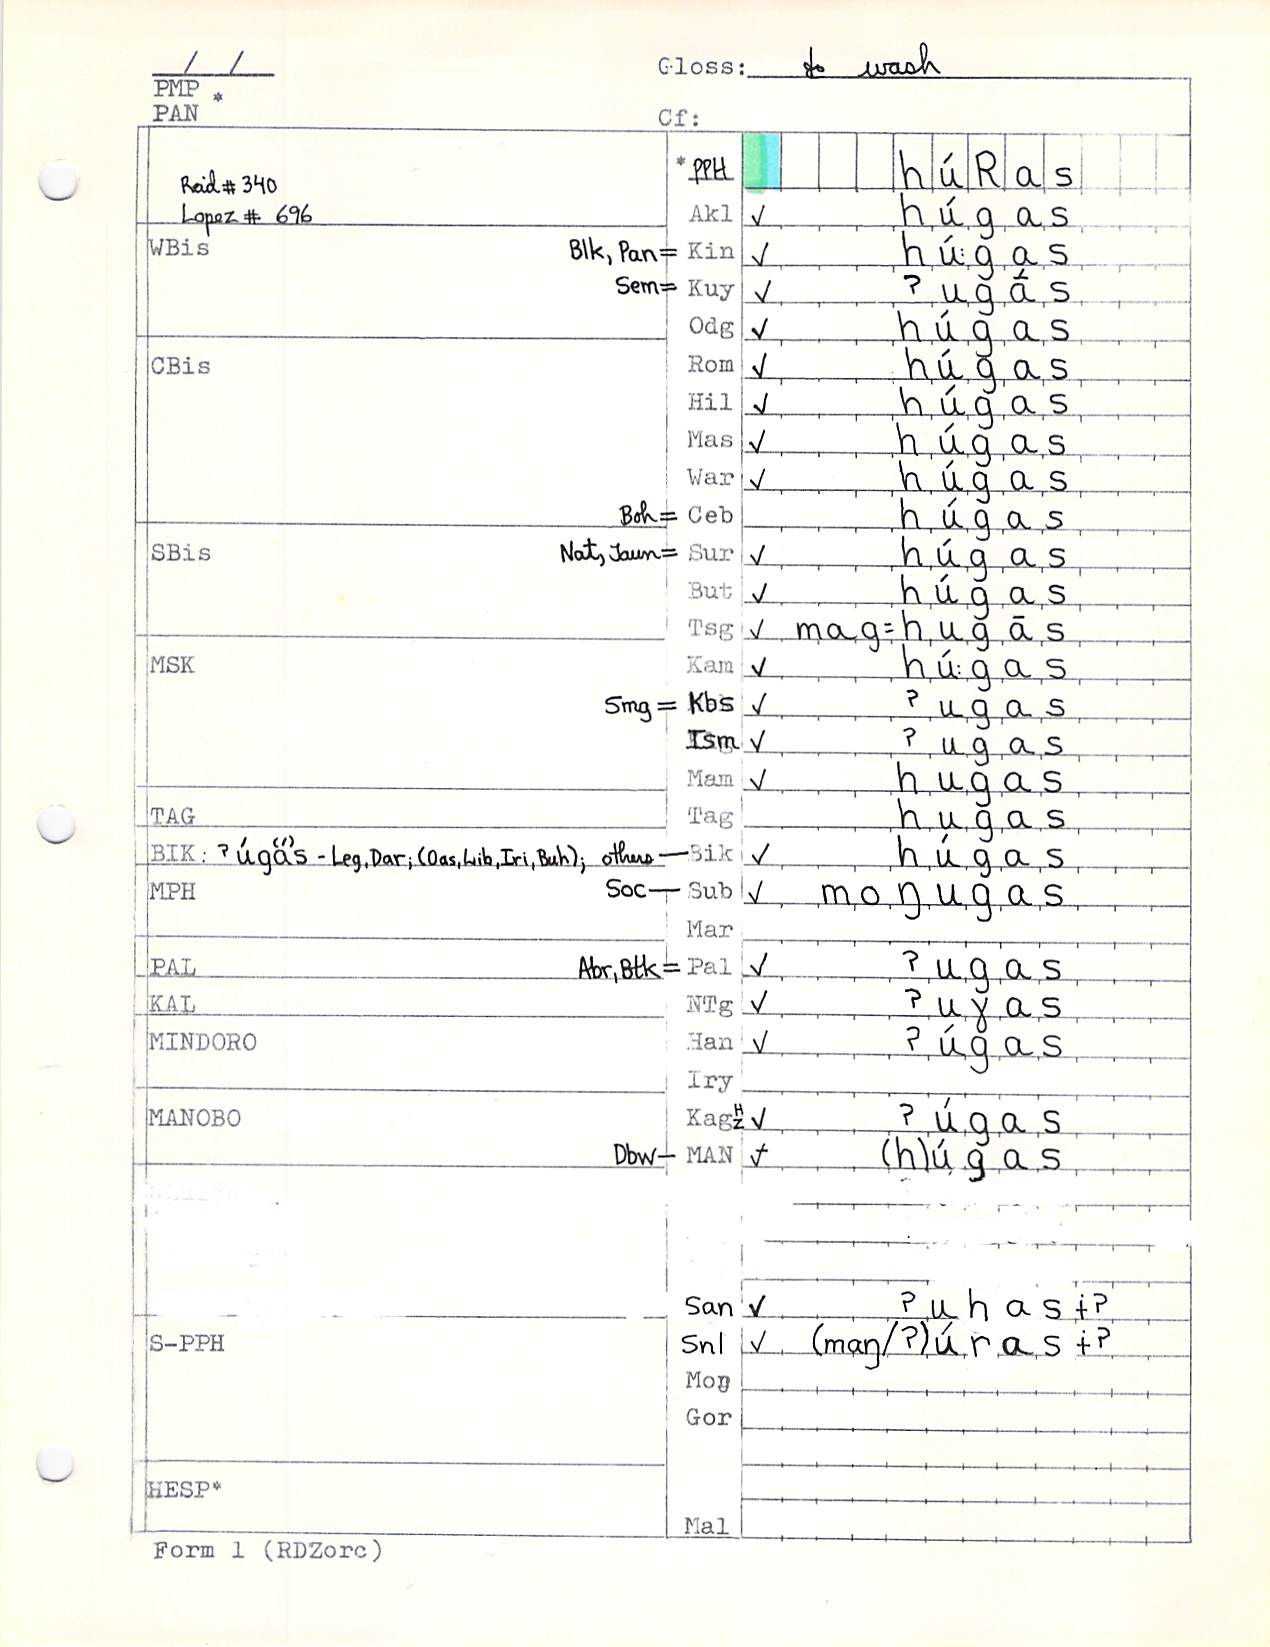 / / Gloss: to wash
PMP *
PAN Cf:
Reid # 340 *PPH húRas
Lopez # 696 Akl ✓ húgas
WBis Blk, Pan = Kin ✓ hú:gas
Sem = Kuy ✓ ?ugás
Odg ✓ húgas
CBis Rom ✓ húgas
Hil ✓ húgas
Mas ✓ húgas
War ✓ húgas
Boh = Ceb húgas
SBis Nat, Jaun = Sur ✓ húgas
But ✓ húgas
Tsg ✓ mag=hugās
MSK Kam ✓ hú:gas
Smg = Kbs ✓ ?ugas
Ism ✓ ?ugas
Mam ✓ hugas
TAG Tag hugas
BIK: ?úgá(́)s - Leg, Dar; (Oas, Lib, Iri, Buh); others — Bik ✓ húgas
MPH Soc — Sub ✓ moŋugas
Mar
PAL Abr, Btk = Pal ✓ ?ugas
KAL NTg ✓ ?uɣas
MINDORO Han ✓ ?úgas
Iry
MANOBO Kag H Z ✓ ?úgas
Dbw — MAN ✓ (h)úgas
San ✓ ?uhas+?
S-PPH Snl ✓ (maŋ/?)úras+?
Moŋ
Gor
HESP*
Mal
Form 1 (RDZorc)